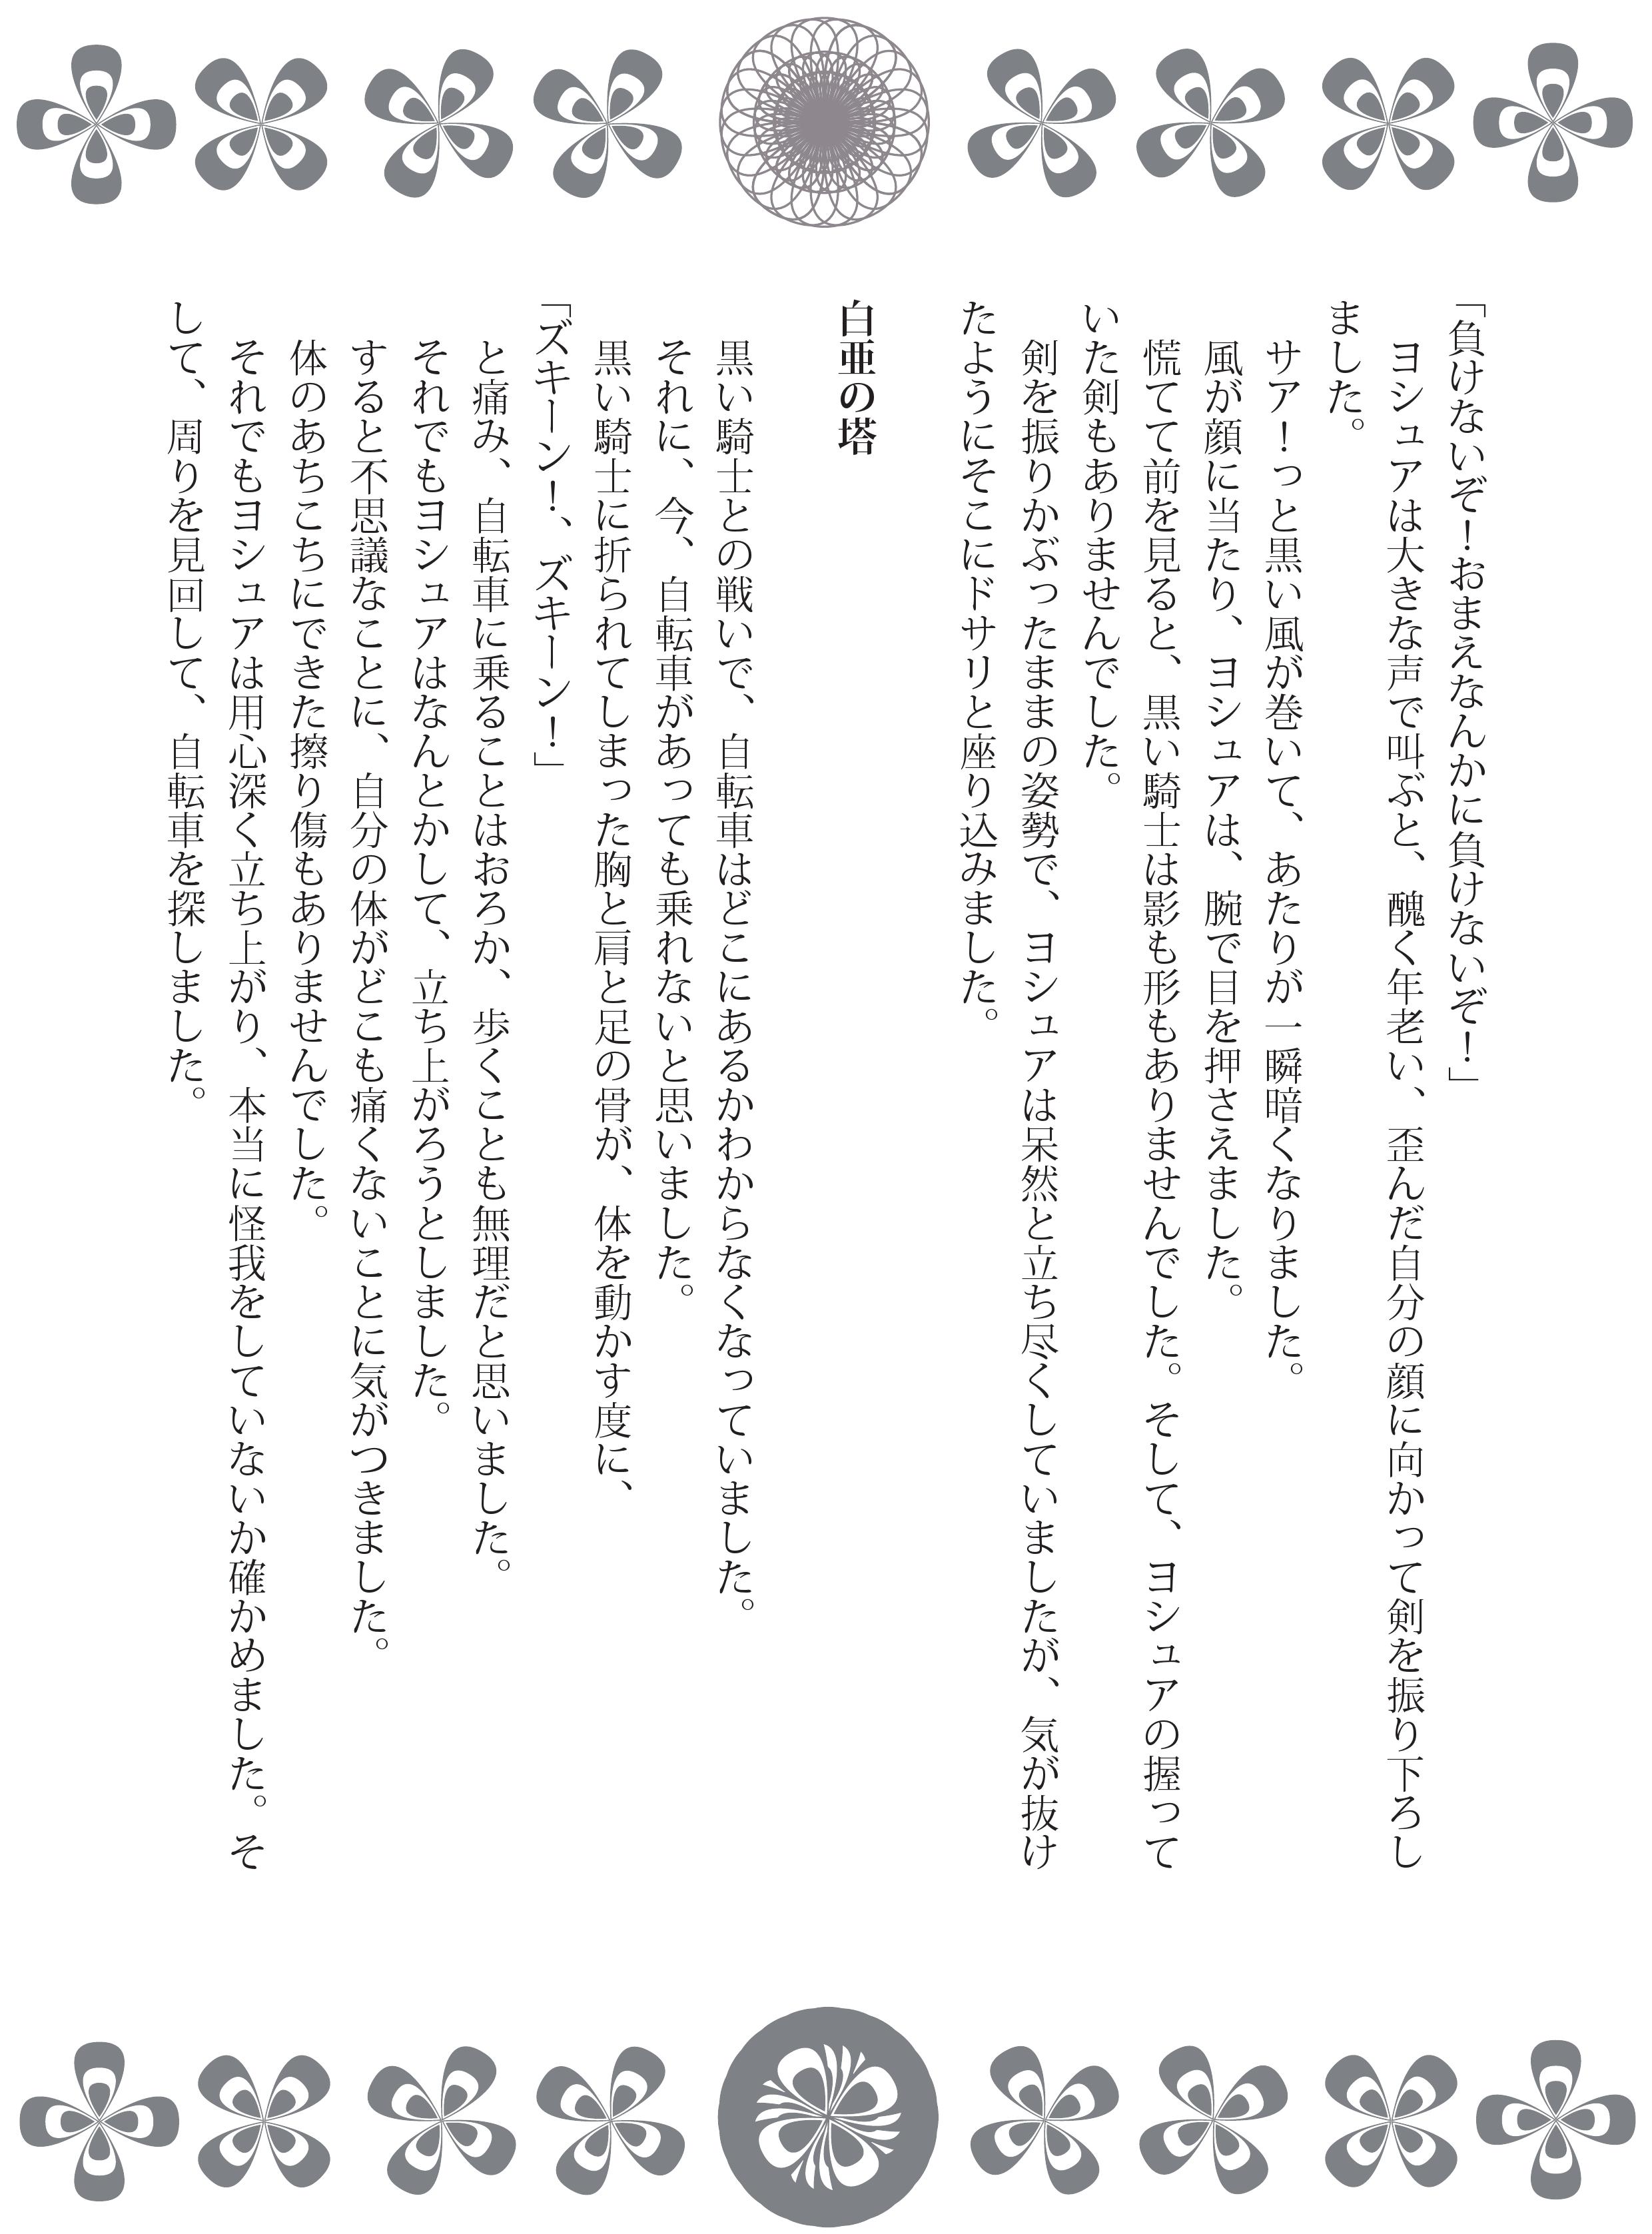 「負けないぞ！おまえなんかに負けないぞ！」
　ヨシュアは大きな声で叫ぶと、醜く年老い、歪んだ自分の顔に向かって剣を振り下ろし
ました。
　サア！っと黒い風が巻いて、あたりが一瞬暗くなりました。
　風が顔に当たり、ヨシュアは、腕で目を押さえました。
　慌てて前を見ると、黒い騎士は影も形もありませんでした。そして、ヨシュアの握って
いた剣もありませんでした。
　剣を振りかぶったままの姿勢で、ヨシュアは呆然と立ち尽くしていましたが、気が抜け
たようにそこにドサリと座り込みました。
白亜の塔
　黒い騎士との戦いで、自転車はどこにあるかわからなくなっていました。
　それに、今、自転車があっても乗れないと思いました。
　黒い騎士に折られてしまった胸と肩と足の骨が、体を動かす度に、
「ズキーン！、ズキーン！」
　と痛み、自転車に乗ることはおろか、歩くことも無理だと思いました。
　それでもヨシュアはなんとかして、立ち上がろうとしました。
　すると不思議なことに、自分の体がどこも痛くないことに気がつきました。
　体のあちこちにできた擦り傷もありませんでした。
　それでもヨシュアは用心深く立ち上がり、本当に怪我をしていないか確かめました。そ
して、周りを見回して、自転車を探しました。